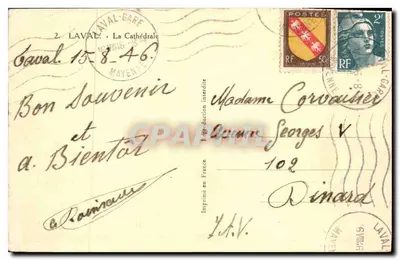 2. LAVAL - La Cathédrale
Laval 15-8-46
Bon Souvenir
et
a Bientôt
LAVAL-GARE
MAYENNE
Reproduction interdite
Imprimé en France
POSTES
RF
50c
2F
RF
Madame Corvaisier
Avenue Georges V
102
Dinard
I.&V.
CARTAPEL
LAVAL-GARE